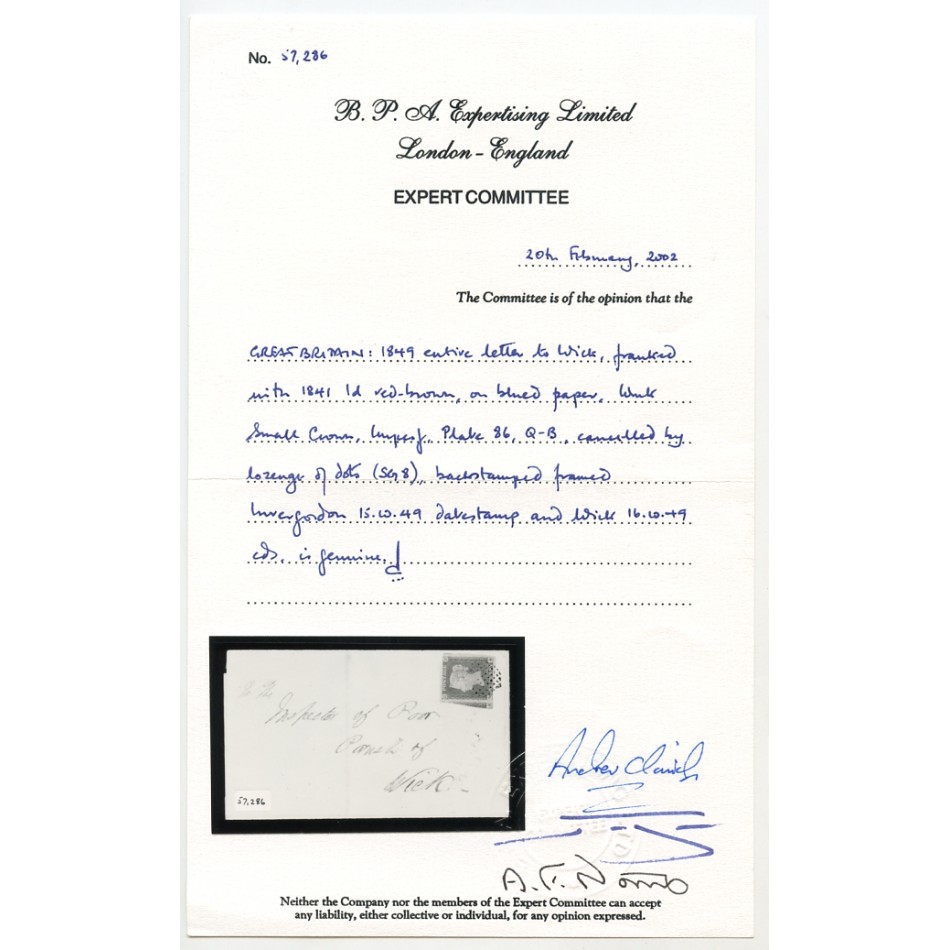 No. 57,286
B. P. A. Expertising Limited
London - England
EXPERT COMMITTEE
20th February, 2002
The Committee is of the opinion that the
GREAT BRITAIN: 1849 entire letter to Wick, franked
with 1841 1d red-brown, on blued paper, Wmk
Small Crown, Imperf, Plate 86, Q-B, cancelled by
lozenge of dots (SG8), backstamped framed
Invergordon 15.10.49 datestamp and Wick 16.10.49
cds, is genuine.
Inspector of Poor
Parish of
Wick
57,286
A. F. Norris
Neither the Company nor the members of the Expert Committee can accept
any liability, either collective or individual, for any opinion expressed.